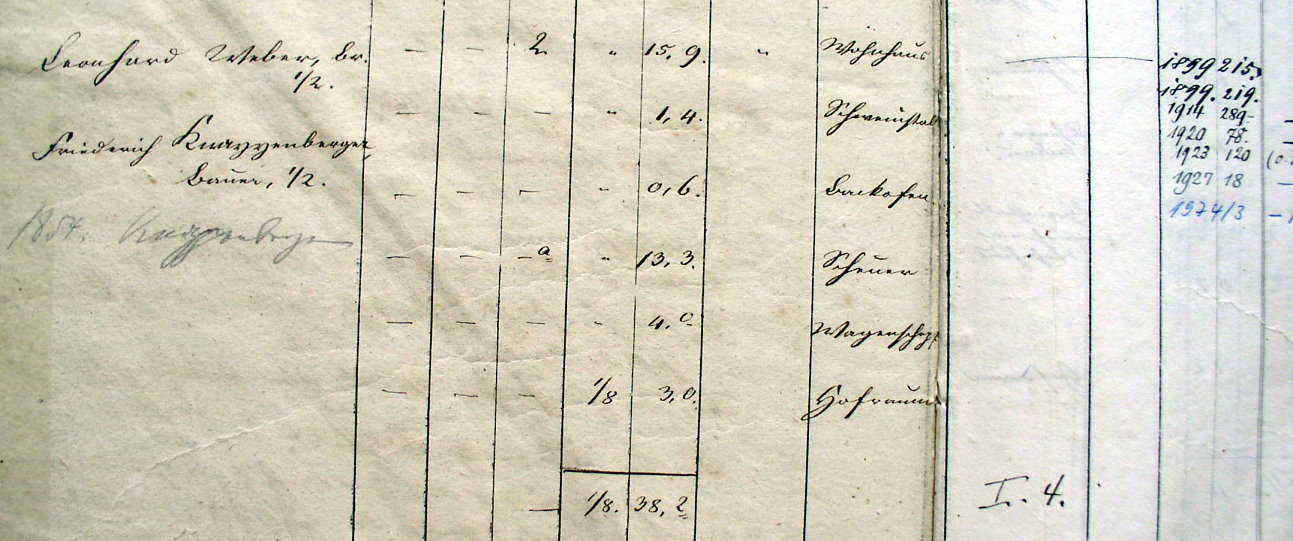 Leonhard Weber, Br. — — 2 " 15, 9. " Wohnhaus
1/2.
— — — " 1, 4. Schweinstall
Friederich Knappenberger,
Bauer, 1/2.
— — — " 0, 6. Backofen
1854. Knappenberger
— — — a " 13, 3. Scheuer
— — — " 4, 0. Wagenschopf
— — — 1/8 3, 0. Hofraum
— 1/8. 38, 2
1859 215.
1899. 219.
1914 289 –
1920 78. –
1923 120
1927 18 –
1974/3 –
I. 4.